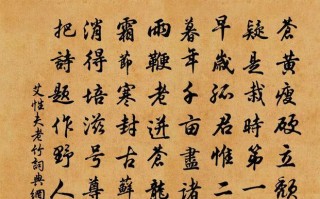 蒼黃瘦硬立
疑是栽時第一
早歲孤君惟二
暮年千亩盡諸
雨鞭老迸蒼龍
霜節寒封古蘚
消得培滋号尊
把詩題作野人
艾性夫老竹詞典網